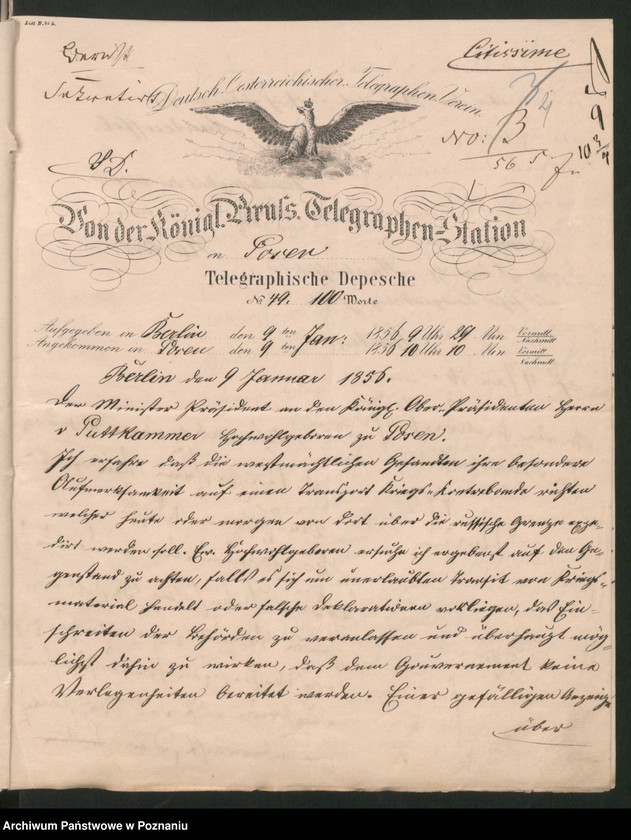 Citissime
Deutsch-Oesterreichischer Telegraphen-Verein.
No: 3
56
10 3/4
Von der Königl. Preuſs. Telegraphen-Station
in Posen
Telegraphische Depesche
No 49. 100 Worte
Aufgegeben in Berlin den 9 ten Jan: 1856, 9 Uhr 29 Min Vormitt. Nachmitt
Angekommen in Posen den 9 ten 1856 10 Uhr 10 Min Vormitt Nachmitt
Berlin den 9 Januar 1856.
Der Minister Präsident an den Königl. Ober-Präsidenten Herrn
v Puttkammer Hochwohlgeboren zu Posen.
Ich erfahre daß die westmächtlichen Gesandten ihre besondere
Aufmerksamkeit auf einen Transport Kriegs-Kontrebande richten
welcher heute oder morgen von dort über die russische Grenze expe-
dirt werden soll. Ew. Hochwohlgeboren ersuche ich ergebenst auf den Ge-
genstand zu achten, falls es sich um unerlaubten Transit von Kriegs-
material handelt oder falsche Deklarationen vorliegen, das Ein-
schreiten der Behörden zu veranlassen und überhaupt mög-
lichst dahin zu wirken, daß dem Gouvernement keine
Verlegenheiten bereitet werden. Einer gefälligen Anzeige
über
Archiwum Państwowe w Poznaniu